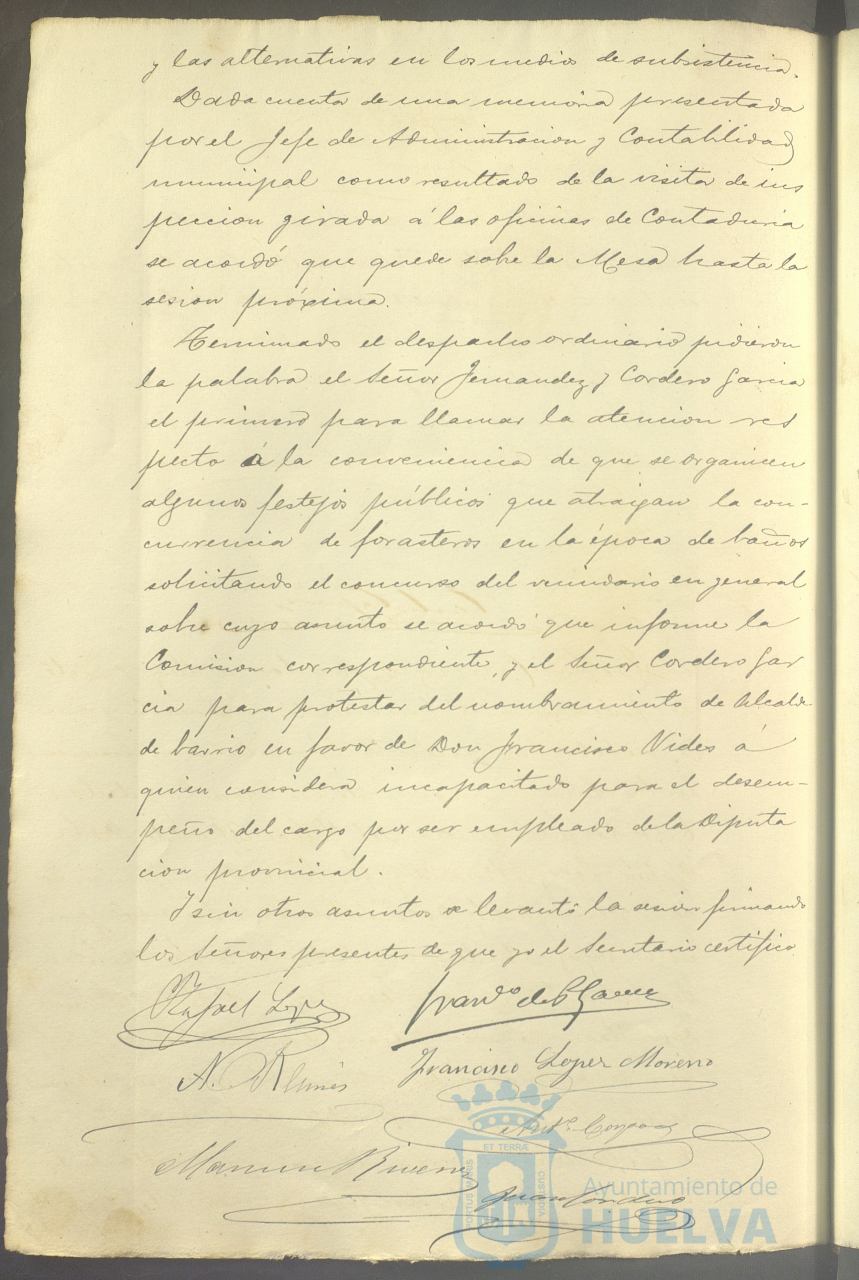 y las alternativas en los medios de subsistencia.
Dada cuenta de una memoria presentada
por el Jefe de Administracion y Contabilidad
municipal como resultado de la visita de ins
peccion girada á las oficinas de Contaduria
se acordó que quede sobre la Mesa hasta la
sesion próxima.
Terminado el despacho ordinario pidieron
la palabra el Señor Fernandez y Cordero Garcia
el primero para llamar la atencion res
pecto á la conveniencia de que se organicen
algunos festejos públicos que atraigan la con-
currencia de forasteros en la época de baños
solicitando el concurso del vecindario en general
sobre cuyo asunto se acordó que informe la
Comision correspondiente, y el Señor Cordero Gar
cia para protestar del nombramiento de Alcalde
de barrio en favor de Don Francisco Vides á
quien considera incapacitado para el desem-
peño del cargo por ser empleado de la Diputa
cion provincial.
Y sin otros asuntos se levantó la sesion firmando
los Señores presentes de que yo el Secretario certifico
Rafael Lopez
Franco de P.
A.
Francisco Lopez Moreno
Anto.
Manuel Rivera
Juan Cordero
ET TERRÆ
PORTUS MARIS
CUSTODIA
Ayuntamiento de
HUELVA